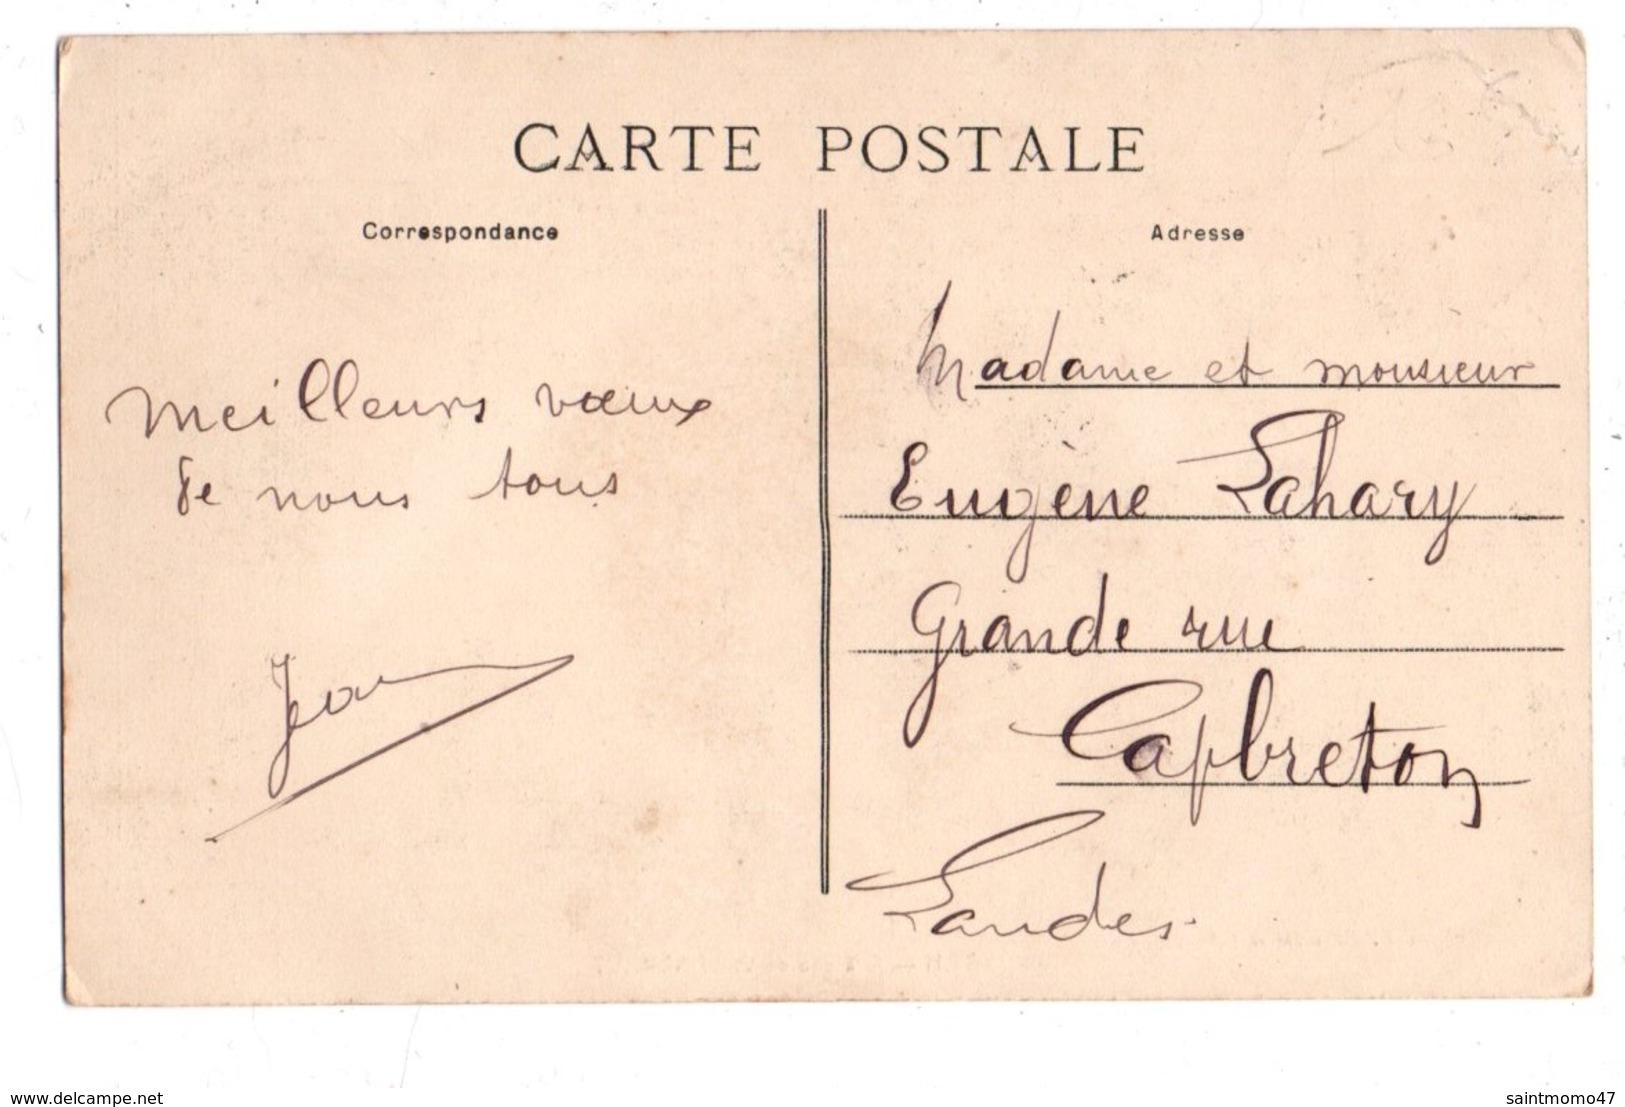 CARTE POSTALE
Correspondance
Adresse
Meilleurs vœux
de nous tous
Jean
Madame et monsieur
Eugène Lahary
Grande rue
Capbreton
Landes.
www.delcampe.net
saintmomo47